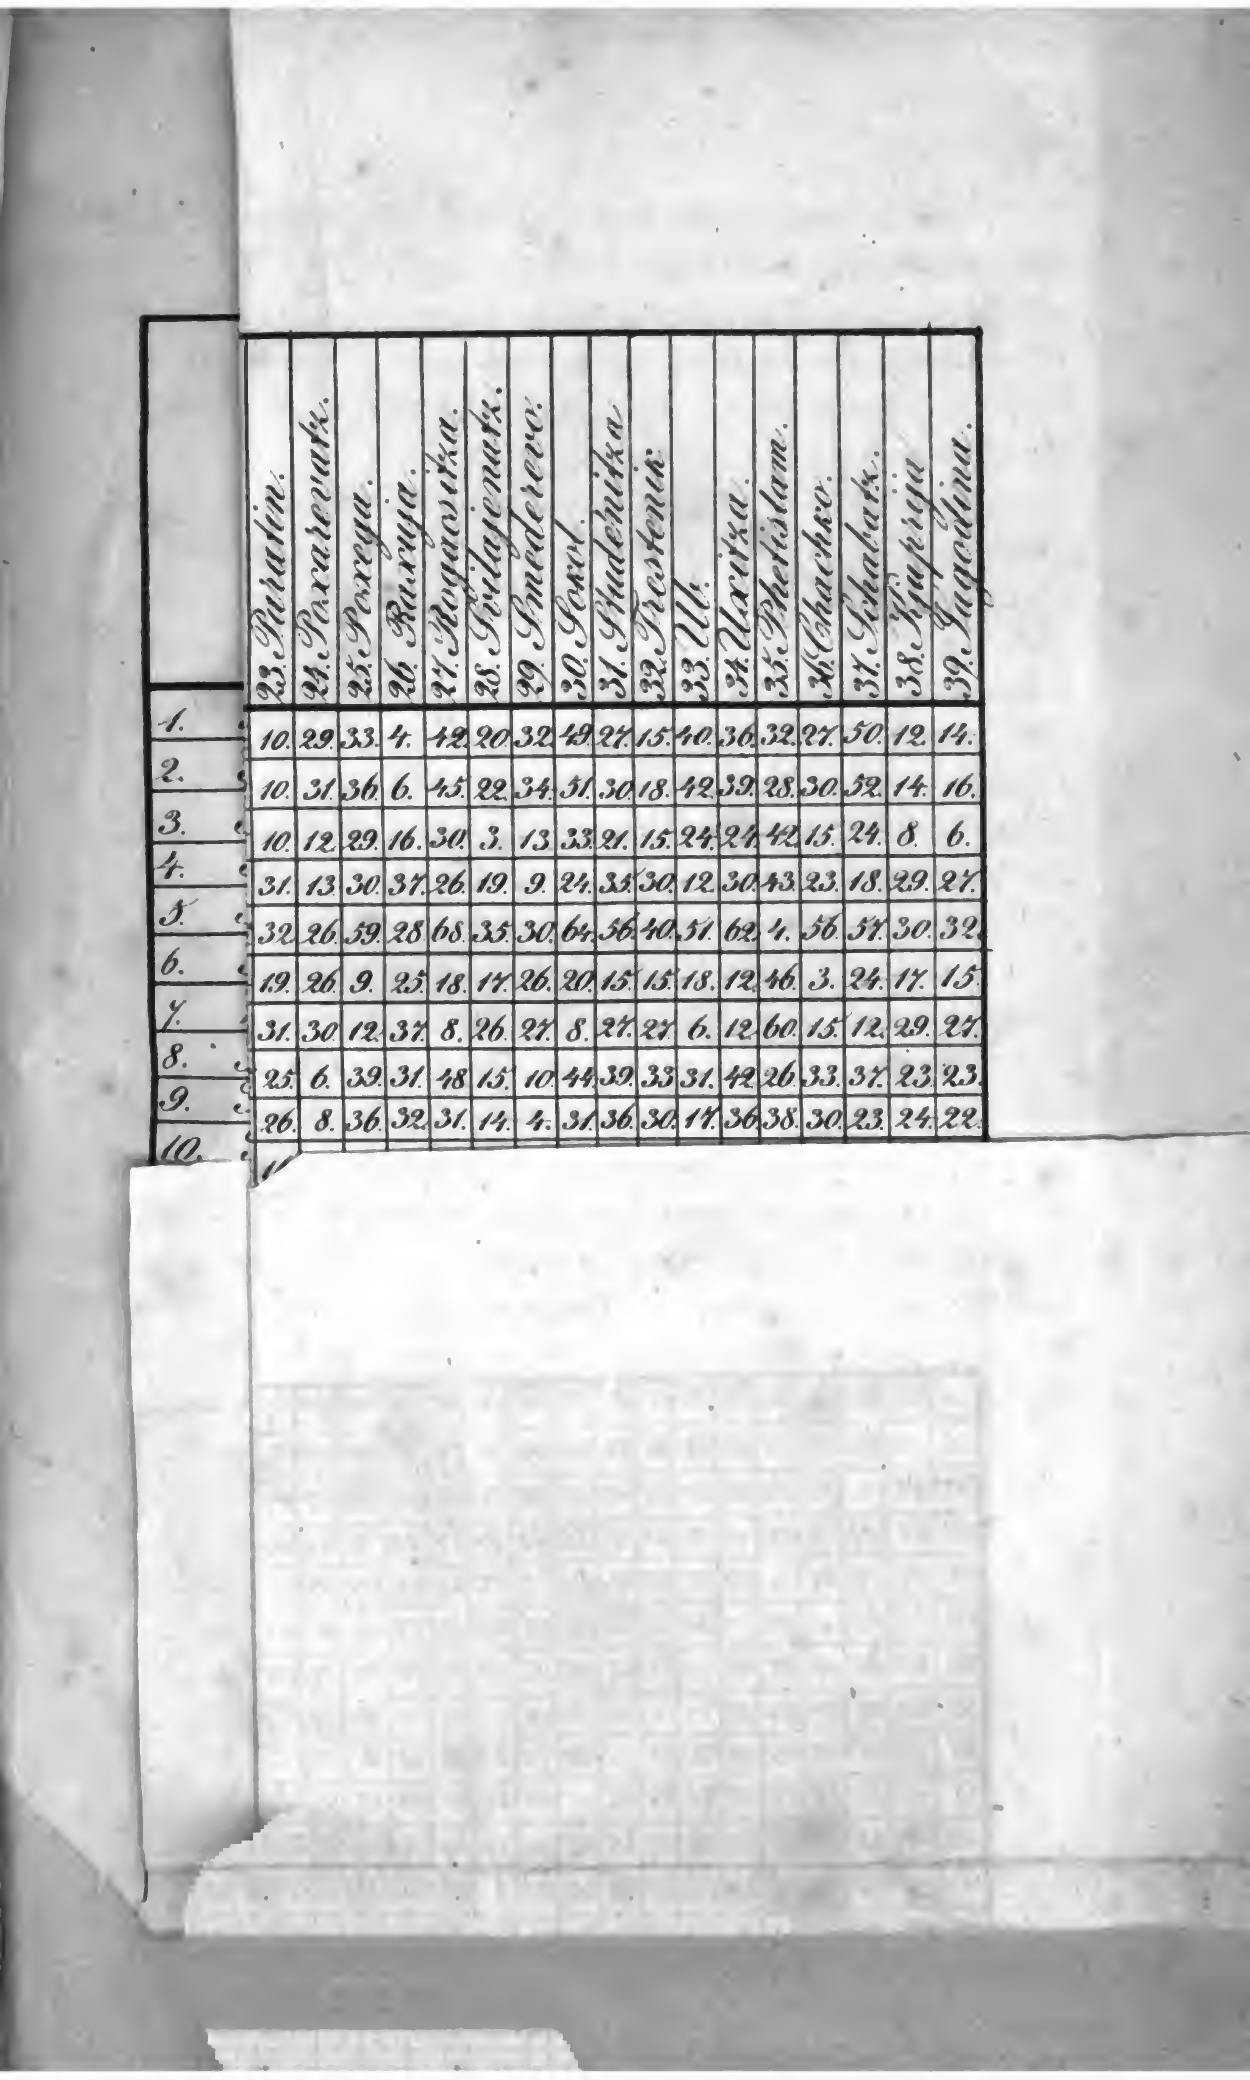 23. Paratin. 24. Poxarevatz. 25. Poxega. 26. Raxnja. 27. Rogaositza. 28. Svilajenatz. 29. Smederevo. 30. Sokol. 31. Studenitza 32. Trestenik 33. Ub. 34. Uxitza. 35. Phetislam. 36. Chachko. 37. Schabatz. 38. Kjuprija 39. Jagodina.
1. 10. 29. 33. 4. 42. 20. 32. 49. 27. 15. 40. 36. 32. 27. 50. 12. 14.
2. 10. 31. 36. 6. 45. 22. 34. 51. 30. 18. 42. 39. 28. 30. 52. 14. 16.
3. 10. 12. 29. 16. 30. 3. 13. 33. 21. 15. 24. 24. 42. 15. 24. 8. 6.
4. 31. 13. 30. 37. 26. 19. 9. 24. 35. 30. 12. 30. 43. 23. 18. 29. 27.
5. 32. 26. 59. 28. 68. 35. 30. 64. 56. 40. 51. 62. 4. 56. 57. 30. 32.
6. 19. 26. 9. 25. 18. 17. 26. 20. 15. 15. 18. 12. 46. 3. 24. 17. 15.
7. 31. 30. 12. 37. 8. 26. 27. 8. 27. 27. 6. 12. 60. 15. 12. 29. 27.
8. 25. 6. 39. 31. 48. 15. 10. 44. 39. 33. 31. 42. 26. 33. 37. 23. 23.
9. 26. 8. 36. 32. 31. 14. 4. 31. 36. 30. 17. 36. 38. 30. 23. 24. 22.
10.